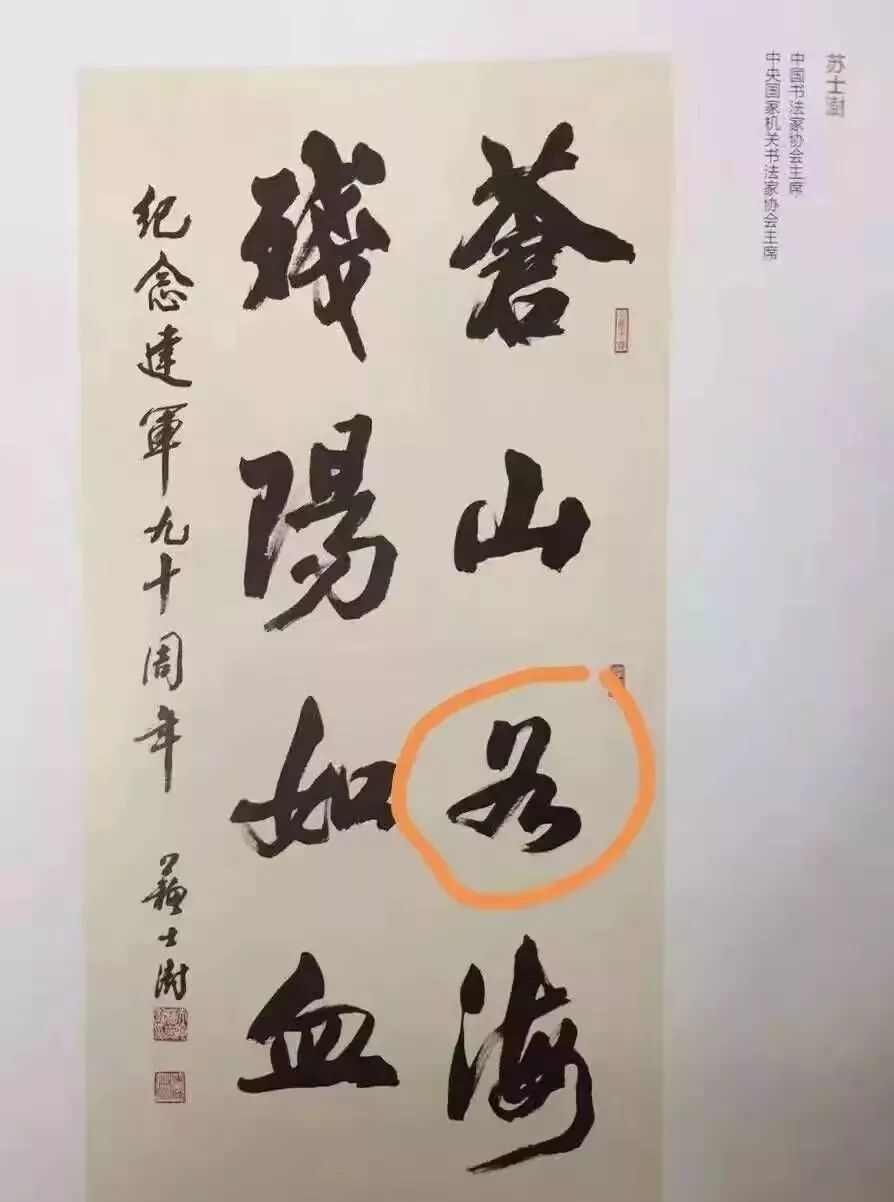 苏士澍
中国书法家协会主席
中央国家机关书法家协会主席
蒼山海
残陽如血
紀念建軍九十周年 蘇士澍